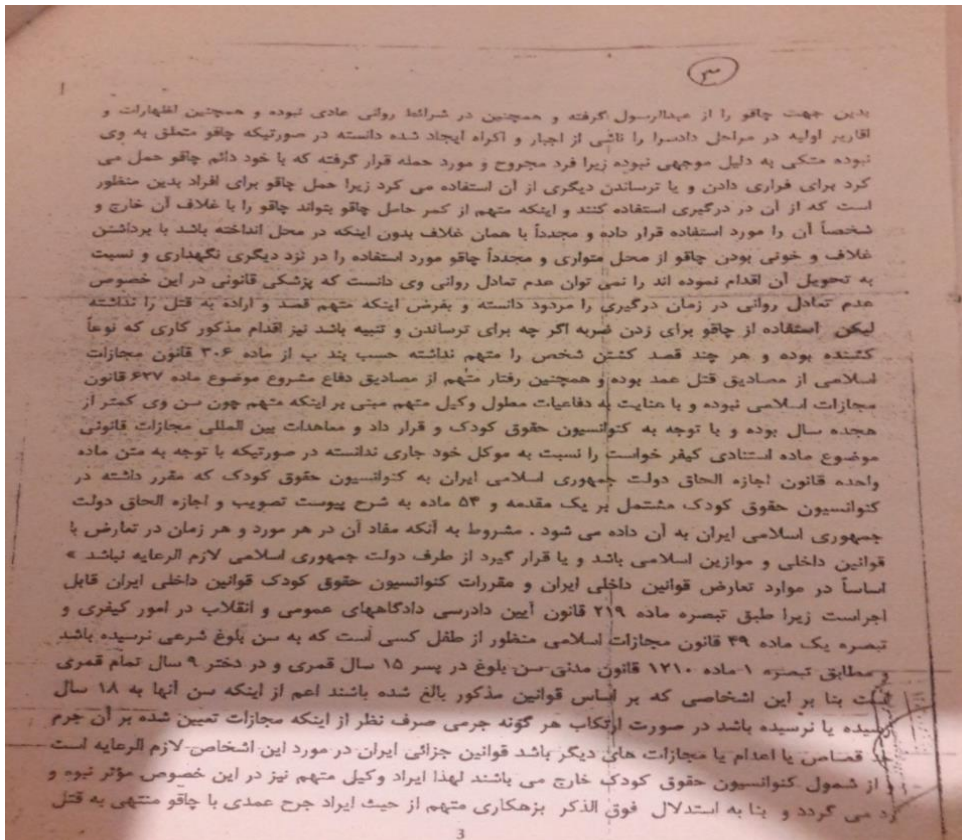 ۳
بدین جهت چاقو را از عبدالرسول گرفته و همچنین در شرائط روانی عادی نبوده و همچنین اظهارات و
اقاریر اولیه در مراحل دادسرا را ناشی از اجبار و اکراه ایجاد شده دانسته در صورتیکه چاقو متعلق به وی
نبوده متکی به دلیل موجهی نبوده زیرا فرد مجروح و مورد حمله قرار گرفته که با خود دائم چاقو حمل می
کرد برای فراری دادن و یا ترساندن دیگری از آن استفاده می کرد زیرا حمل چاقو برای افراد بدین منظور
است که از آن در درگیری استفاده کنند و اینکه متهم از کمر حامل چاقو بتواند چاقو را با غلاف آن خارج و
شخصاً آن را مورد استفاده قرار داده و مجدداً با همان غلاف بدون اینکه در محل انداخته باشد با برداشتن
غلاف و خونی بودن چاقو از محل متواری و مجدداً چاقو مورد استفاده را در نزد دیگری نگهداری و نسبت
به تحویل آن اقدام نموده اند را نمی توان عدم تعادل روانی وی دانست که پزشکی قانونی در این خصوص
عدم تعادل روانی در زمان درگیری را مردود دانسته و بفرض اینکه متهم قصد و اراده به قتل را نداشته
لیکن استفاده از چاقو برای زدن ضربه اگر چه برای ترساندن و تنبیه باشد نیز اقدام مذکور کاری که نوعاً
کشنده بوده و هر چند قصد کشتن شخص را متهم نداشته حسب بند ب از ماده ۳۰۶ قانون مجازات
اسلامی از مصادیق قتل عمد بوده و همچنین رفتار متهم از مصادیق دفاع مشروع موضوع ماده ۶۲۷ قانون
مجازات اسلامی نبوده و با عنایت به دفاعیات مطول وکیل متهم مبنی بر اینکه متهم چون سن وی کمتر از
هجده سال بوده و با توجه به کنوانسیون حقوق کودک و قرار داد و معاهدات بین المللی مجازات قانونی
موضوع ماده استنادی کیفر خواست را نسبت به موکل خود جاری ندانسته در صورتیکه با توجه به متن ماده
واحده قانون اجازه الحاق دولت جمهوری اسلامی ایران به کنوانسیون حقوق کودک که مقرر داشته در
کنوانسیون حقوق کودک مشتمل بر یک مقدمه و ۵۴ ماده به شرح پیوست تصویب و اجازه الحاق دولت
جمهوری اسلامی ایران به آن داده می شود . مشروط به آنکه مفاد آن در هر مورد و هر زمان در تعارض با
قوانین داخلی و موازین اسلامی باشد و یا قرار گیرد از طرف دولت جمهوری اسلامی لازم الرعایه نباشد »
اساساً در موارد تعارض قوانین داخلی ایران و مقررات کنوانسیون حقوق کودک قوانین داخلی ایران قابل
اجراست زیرا طبق تبصره ماده ۲۱۹ قانون آیین دادرسی دادگاههای عمومی و انقلاب در امور کیفری و
تبصره یک ماده ۴۹ قانون مجازات اسلامی منظور از طفل کسی است که به سن بلوغ شرعی نرسیده باشد
و مطابق تبصره ۱ ماده ۱۲۱۰ قانون مدنی سن بلوغ در پسر ۱۵ سال قمری و در دختر ۹ سال تمام قمری
است بنا بر این اشخاصی که بر اساس قوانین مذکور بالغ شده باشند اعم از اینکه سن آنها به ۱۸ سال
رسیده یا نرسیده باشد در صورت ارتکاب هر گونه جرمی صرف نظر از اینکه مجازات تعیین شده بر آن جرم
قصاص یا اعدام یا مجازات های دیگر باشد قوانین جزائی ایران در مورد این اشخاص لازم الرعایه است
و از شمول کنوانسیون حقوق کودک خارج می باشند لهذا ایراد وکیل متهم نیز در این خصوص مؤثر نبوده و
رد می گردد و بنا به استدلال فوق الذکر بزهکاری متهم از حیث ایراد جرح عمدی با چاقو منتهی به قتل
3